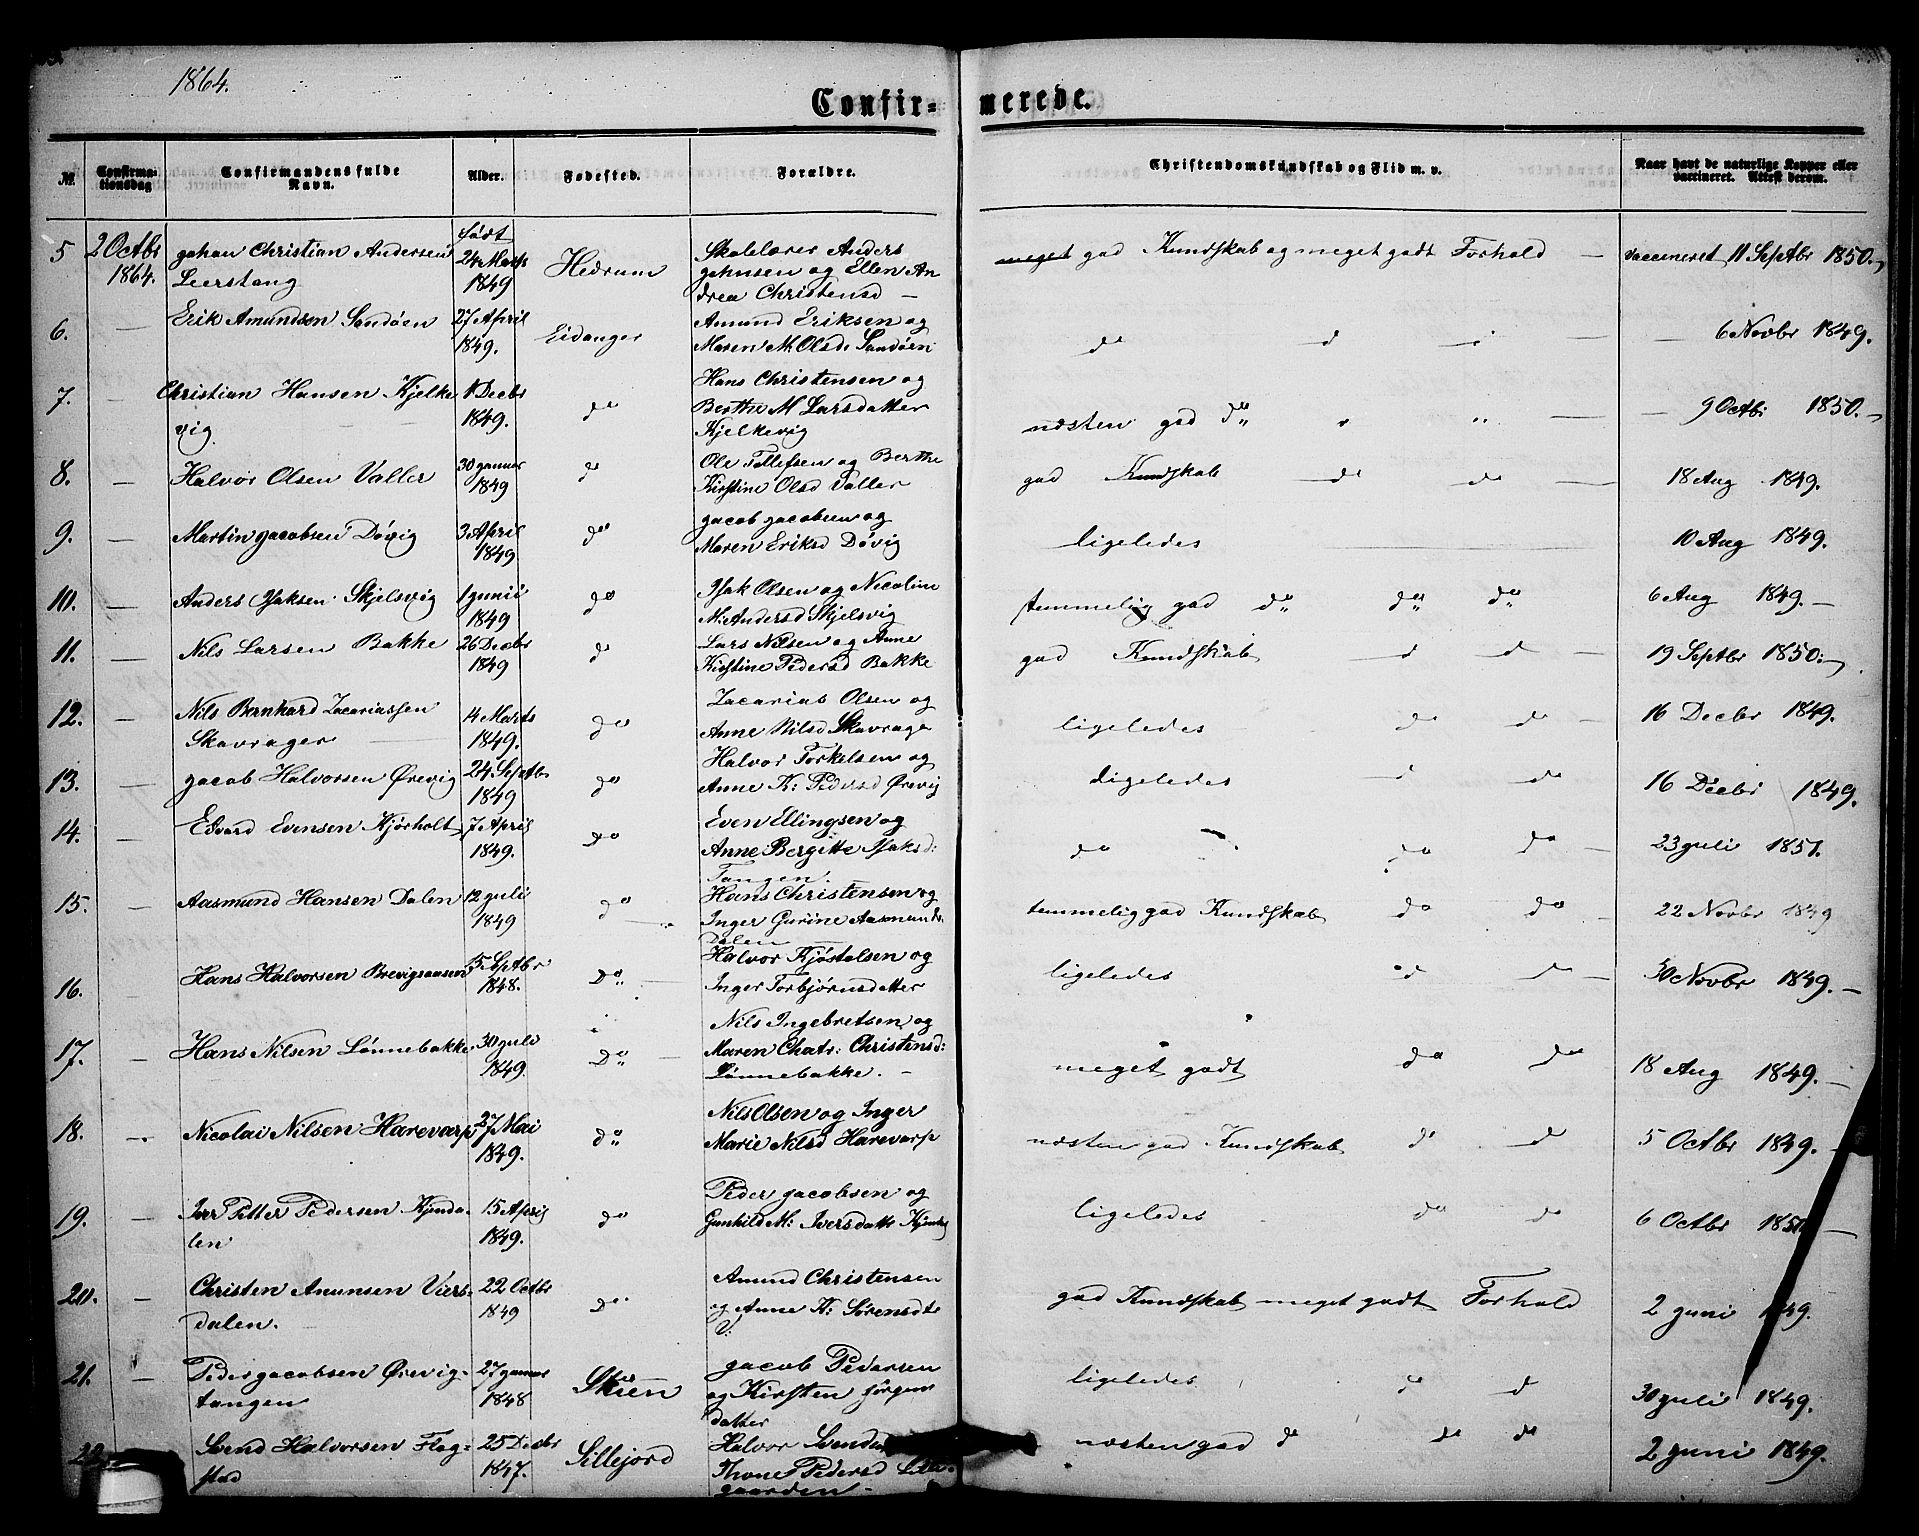 1864.
Confir-
merede.
№
Confirma-
tionsdag
Confirmandens fulde
Navn.
Alder.
Fødested.
Forældre.
Christendomskundskab og Flid m. v.
Naar havt de naturlige Kopper eller
vaccineret. Attest derom.
5 2 Octbr 1864. Johan Christian Andersen Leerstang født 24 Marts 1849 Hedrum Skolelærer Anders Johnsen og Ellen Andrea Christensd — meget god Kundskab og meget godt Forhold — vaccineret 11 Septbr 1850.
6. — Erik Amundsen Sandøen 27 April 1849. Eidanger Amund Eriksen og Maren M. Olsd: Sandøen do d — 6 Novbr 1849.
7. — Christian Hansen Kjelkevig 1 Decbr 1849. do Hans Christensen og Berthe M Larsdatter Kjelkevig næsten god do " " — 9 Octbr 1850.
8. — Halvor Olsen Valler 30 Januar 1849 do Ole Tollefsen og Berthe Kirstine Olsd Valler god Kundskab do do — 18 Aug 1849.
9. — Martin Jacobsen Døvig 3 April 1849 do Jacob Jacobsen og Maren Eriksd Døvig ligeledes — 10 Aug 1849.
10. — Anders Isaksen Skjelsvig 1 Junii 1849 do Isak Olsen og Nicoline M: Andersd Skjelsvig temmelig god do do do 6 Aug 1849. —
11. — Nils Larsen Bakke 26 Decbr 1849 do Lars Nilsen og Anne Kirstine Pedersd Bakke god Kundskab d d — 19 Septbr 1850.
12. — Nils Bernhard Zacariassen Skavrager 4 Marts 1849. do Zacarias Olsen og Anne Nilsd Skavrage ligeledes do do — 16 Decbr 1849.
13. — Jacob Halvorsen Ørevig 24 Septbr 1849 do Halvor Torkelsen og Anne K: Pedersd Ørevig ligeledes d do 16 Decbr 1849.
14. — Edvard Evensen Kjørholt 7 April 1849. do Even Ellingsen og Anne Bergitte Isaksd: Tangen. do do do 23 Juli 1851.
15. — Aasmund Hansen Dalen 12 Juli 1849 do Hans Christensen og Inger Gurine Aasmunds: Dalen temmelig god Kundskab do do — 22 Novbr 1849
16. — Hans Halvorsen Brevigsausen 5 Septbr 1848. Do Halvor Kjøstolsen og Inger Torbjørnsdatter ligeledes d d — 30 Novbr 1849. —
17. — Hans Nilsen Lønnebakke 30 Juli 1849. Do Nils Ingebretsen og Maren Chatr: Christensd: Lønnebakke. — meget godt do do 18 Aug 1849. —
18. — Nicolai Nilsen Harevarp 27 Mai 1849. do Nils Olsen og Inger Marie Nilsd Harevarp næsten god Kundskab do d 5 Octbr 1849.
19. — Iver Petter Pedersen Kjendalen 15 April 1849. do Peder Jacobsen og Gunhild M: Iversdatt ligeledes do do 6 Octbr
20. — Christen Amunsen Versdalen. 22 Octbr 1849 do Amund Christensen og Anne K: Sørensdt V: god Kundskab meget godt Forhold 2 Juni 1849.
21. — Peder Jacobsen Ørevigtangen 27 Januar 1848 Skien Jacob Pedersen og Kirsten Jørgensdatter ligeledes do d 30 Juli 1849.
22. Svend Halvorsen Flogstad 25 Decbr 1847. Sillejord Halvor Svends Thone Pedersd Lillegaarden — næsten god d do do 2 Juni 1849.